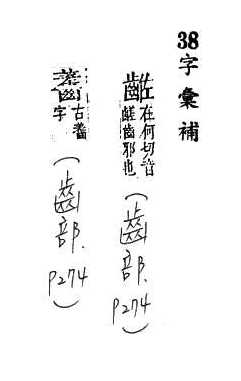 38字彙補
在何切音
齹齒邪也
(齒部.P274)
古
字
(齒部.P274)